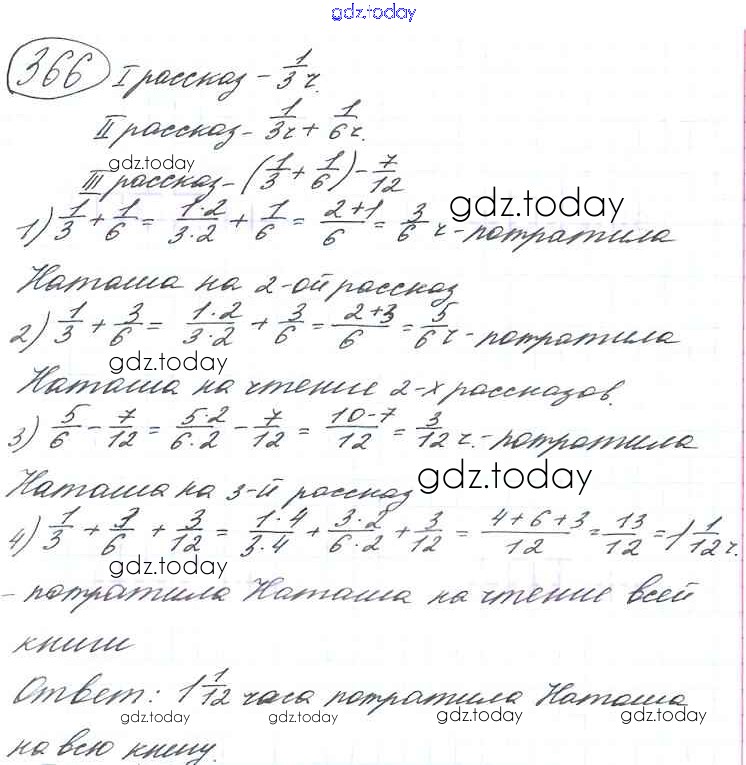 gdz.today
366 I рассказ - 1/3 ч.
II рассказ - 1/3 ч + 1/6 ч.
gdz.today
III рассказ - (1/3 + 1/6) - 7/12
gdz.today
1) 1/3 + 1/6 = 1·2/3·2 + 1/6 = 2+1/6 = 3/6 ч - потратила
Наташа на 2-ой рассказ
2) 1/3 + 3/6 = 1·2/3·2 + 3/6 = 2+3/6 = 5/6 ч - потратила
gdz.today
Наташа на чтение 2-х рассказов.
3) 5/6 - 7/12 = 5·2/6·2 - 7/12 = 10-7/12 = 3/12 ч. - потратила
Наташа на 3-й рассказ
gdz.today
4) 1/3 + 3/6 + 3/12 = 1·4/3·4 + 3·2/6·2 + 3/12 = 4+6+3/12 = 13/12 = 1 1/12 ч.
gdz.today
- потратила Наташа на чтение всей
книги
Ответ: 1 1/12 часа потратила Наташа
gdz.today gdz.today gdz.today gdz.today
на всю книгу.